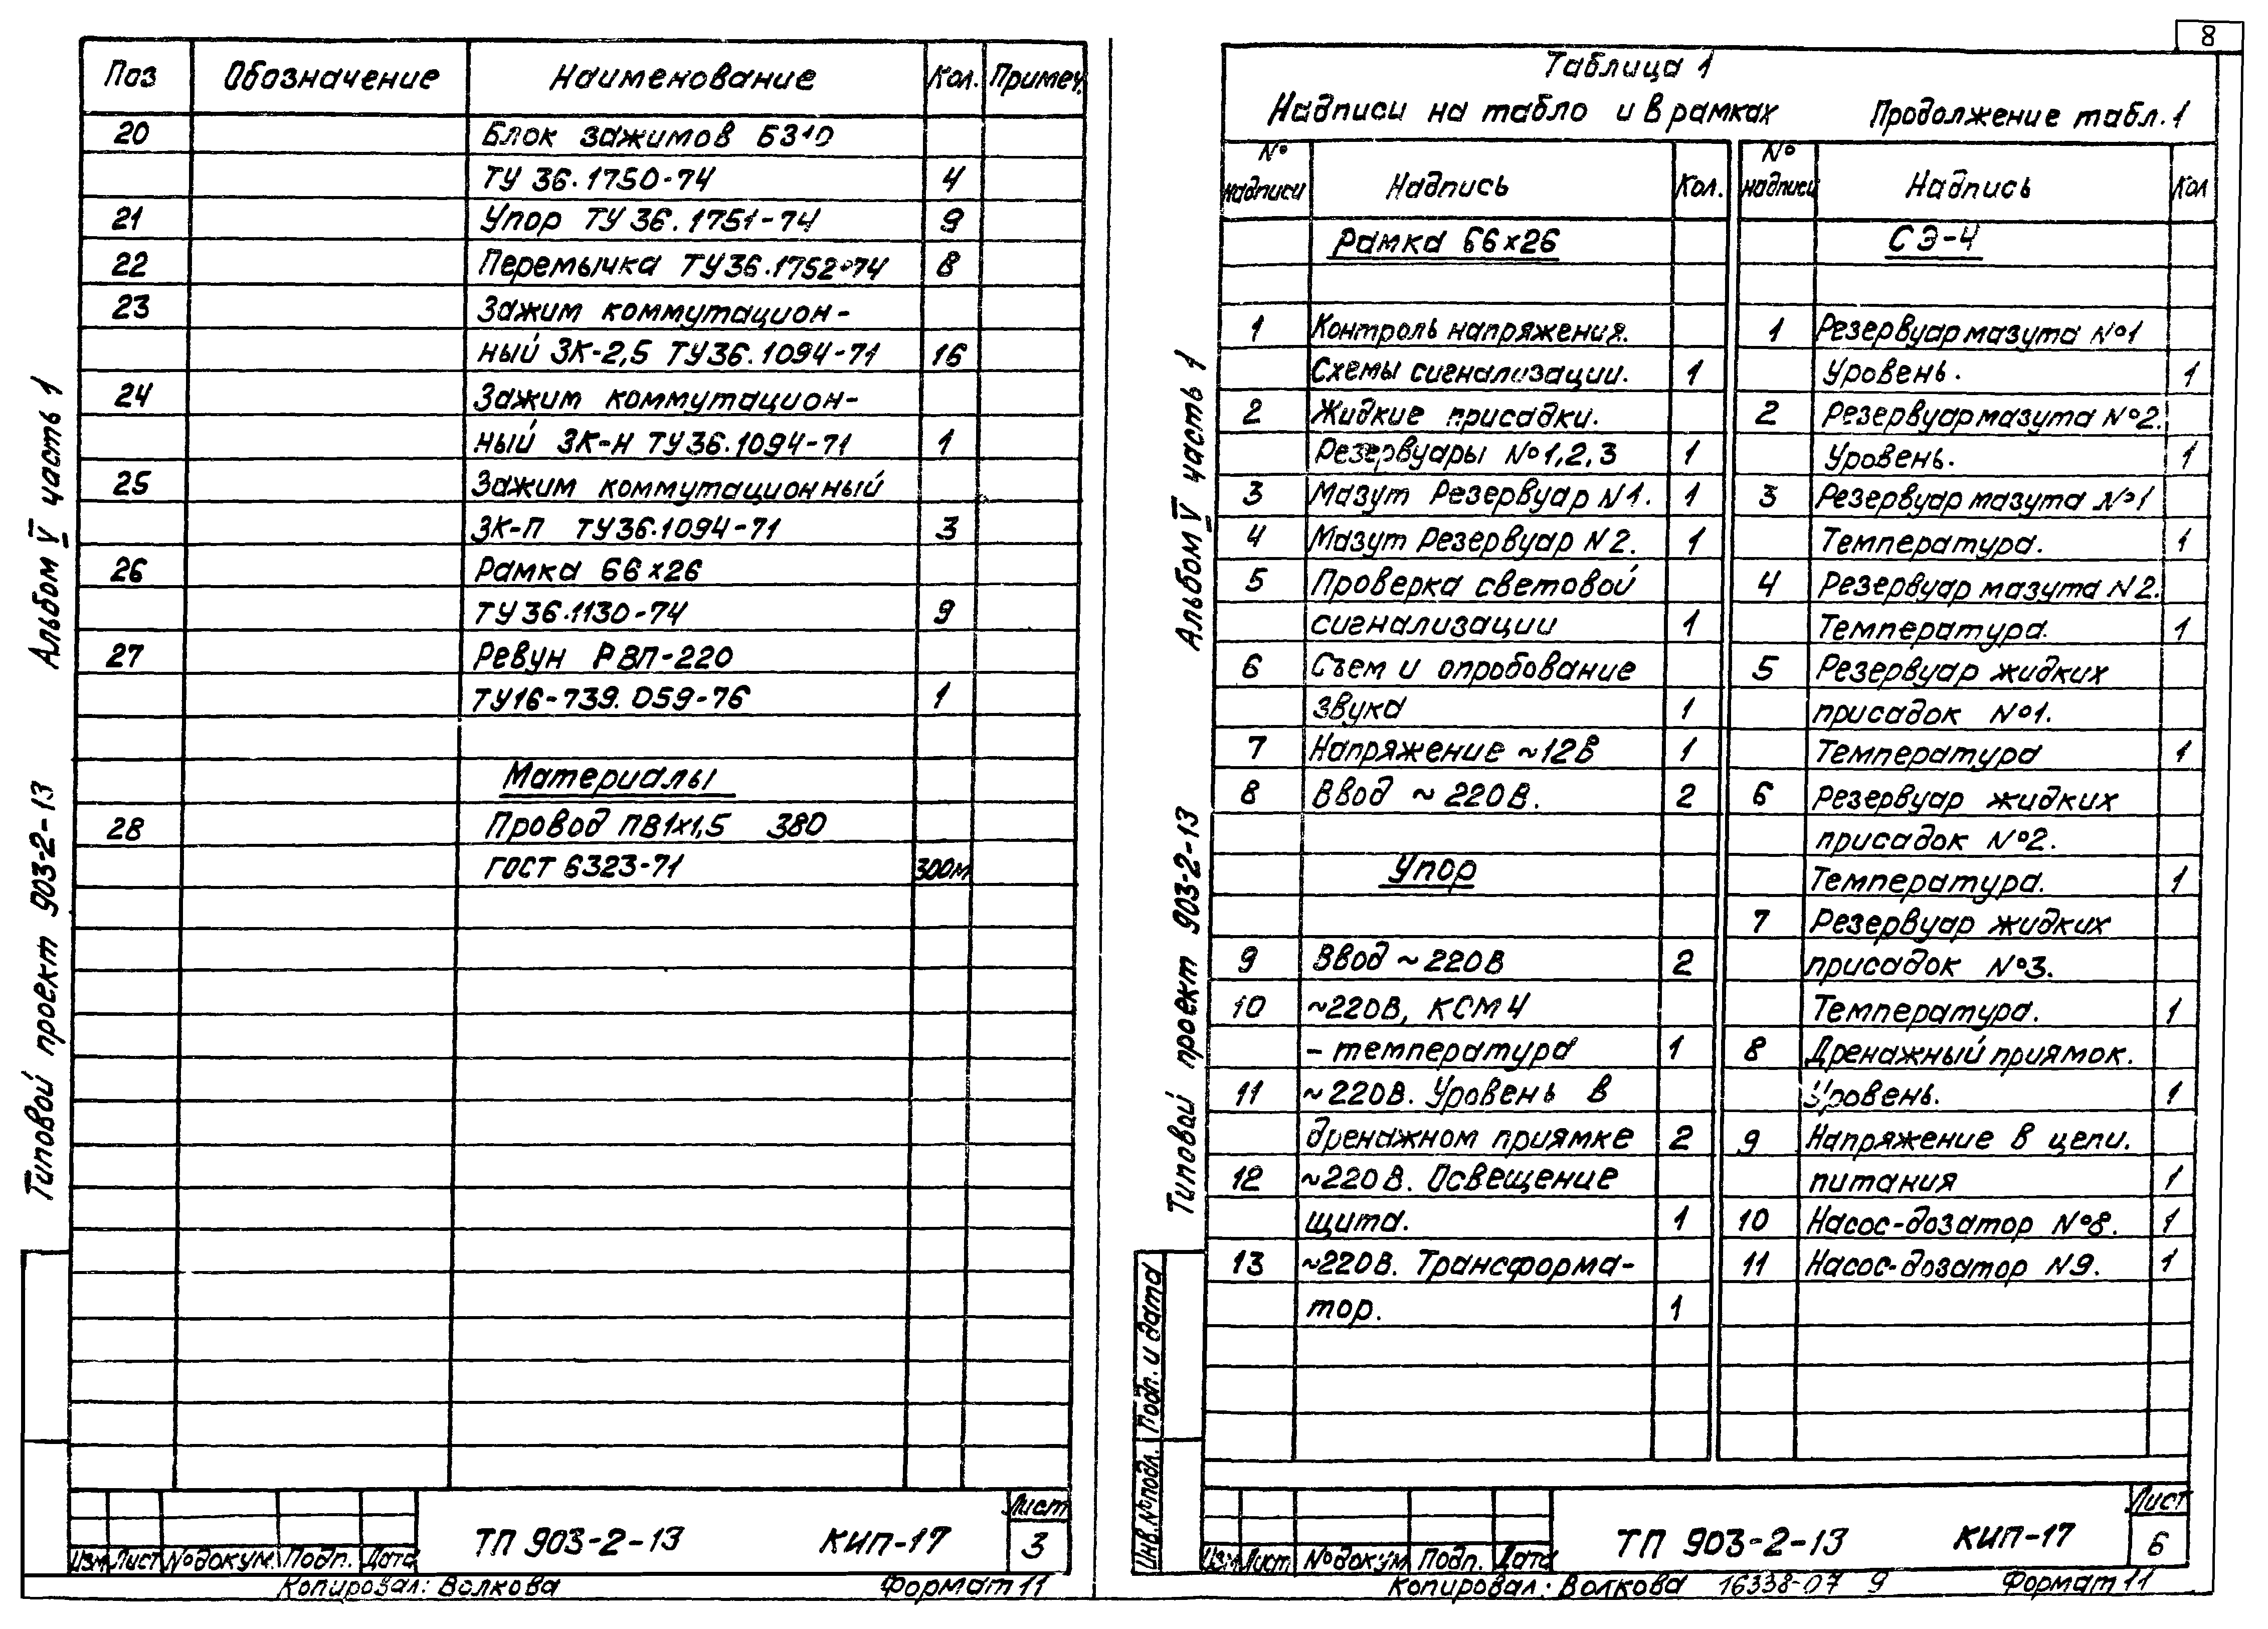 8
Поз Обозначение Наименование Кол. Примеч.
20 Блок зажимов БЗ10
ТУ 36.1750-74 4
21 Упор ТУ 36.1751-74 9
22 Перемычка ТУ36.1752-74 8
23 Зажим коммутацион-
ный ЗК-2,5 ТУ36.1094-71 16
24 Зажим коммутацион-
ный ЗК-Н ТУ36.1094-71 1
25 Зажим коммутационный
ЗК-П ТУ36.1094-71 3
26 Рамка 66х26
ТУ36.1130-74 9
27 Ревун РВП-220
ТУ16-739.059-76 1
Материалы
28 Провод ПВ1х1,5 380
ГОСТ 6323-71 300м
Альбом V часть 1
Типовой проект 903-2-13
Изм Лист № докум. Подп. Дата
ТП 903-2-13 КИП-17
Лист
3
Копировал: Волкова Формат 11
Таблица 1
Надписи на табло и в рамках Продолжение табл. 1
№ надписи Надпись Кол.
Рамка 66х26
1 Контроль напряжения.
Схемы сигнализации. 1
2 Жидкие присадки.
Резервуары №1,2,3 1
3 Мазут Резервуар N1. 1
4 Мазут Резервуар N2. 1
5 Проверка световой
сигнализации 1
6 Съем и опробование
звука 1
7 Напряжение ~12В 1
8 Ввод ~ 220В. 2
Упор
9 Ввод ~220В 2
10 ~220В, КСМ4
- температура 1
11 ~220В. Уровень в
дренажном приямке 2
12 ~220В. Освещение
щита. 1
13 ~220В. Трансформа-
тор. 1
№ надписи Надпись Кол
СЭ-4
1 Резервуар мазута №1
Уровень. 1
2 Резервуар мазута №2.
Уровень. 1
3 Резервуар мазута №1
Температура. 1
4 Резервуар мазута N2.
Температура. 1
5 Резервуар жидких
присадок №1.
Температура 1
6 Резервуар жидких
присадок №2.
Температура. 1
7 Резервуар жидких
присадок №3.
Температура. 1
8 Дренажный приямок.
Уровень. 1
9 Напряжение в цепи.
питания 1
10 Насос-дозатор №8. 1
11 Насос-дозатор N9. 1
Альбом V часть 1
Типовой проект 903-2-13
Инв.№ подл. Подп. и дата
Изм Лист № докум Подп. Дата
ТП 903-2-13 КИП-17
Лист
6
Копировал: Волкова 16338-07 9 Формат 11